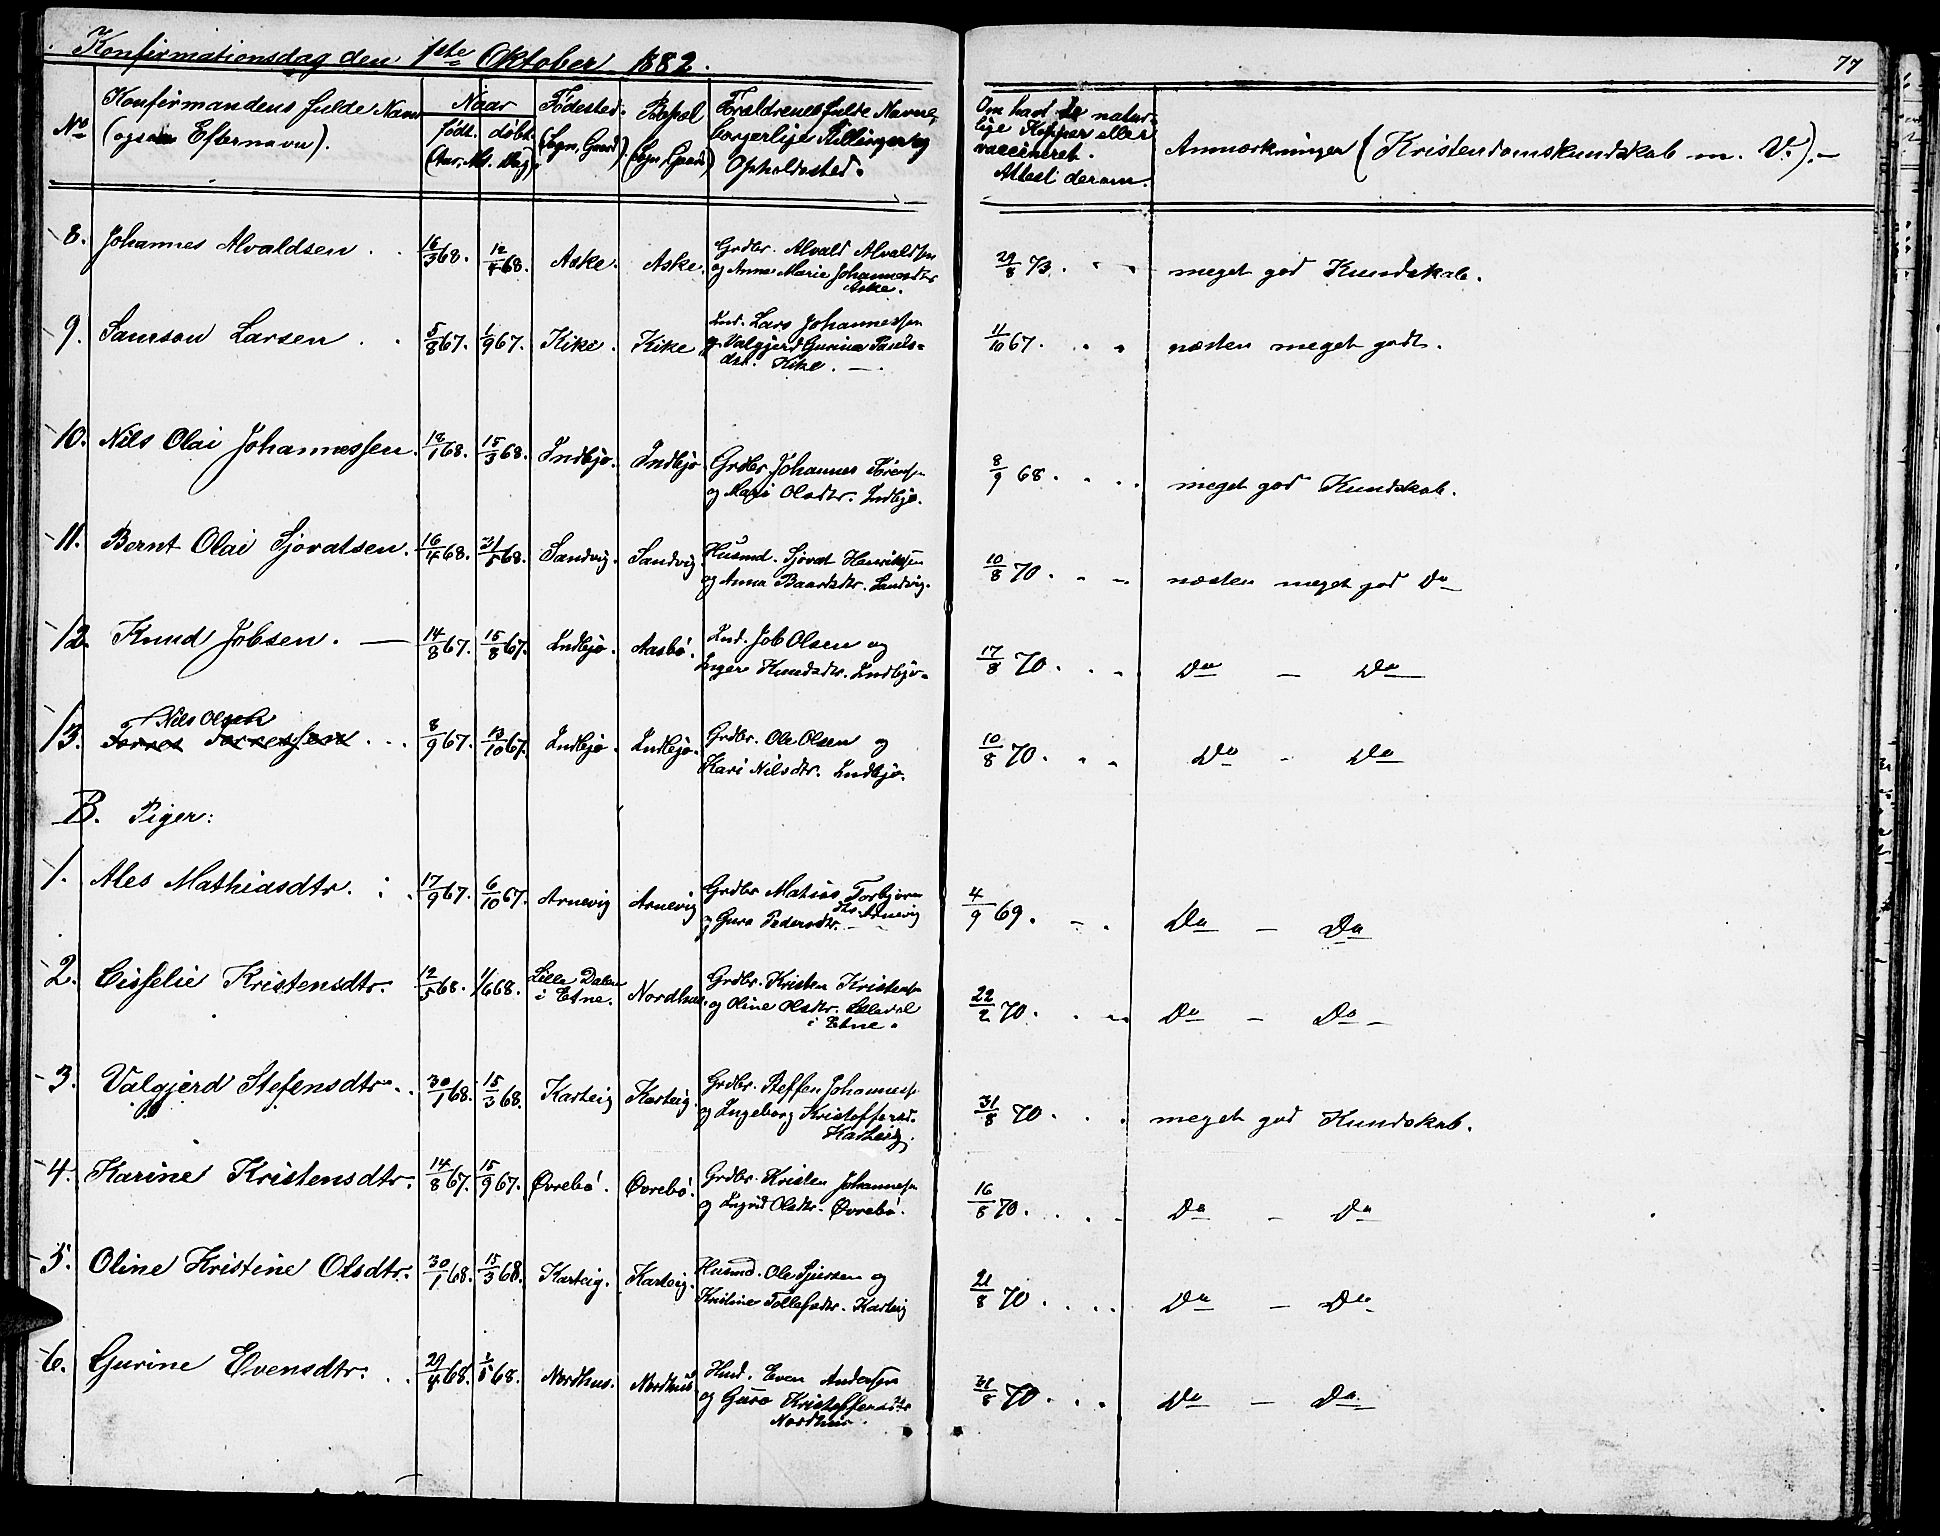 Konfirmationsdag den 1ste Oktober 1882.
77
No
Konfirmandens fulde Navn
(ogsaa Efternavn).
Naar
født. døbt.
(Aar. M. Dag).
Fødested.
(Sogn, Gaard).
Bopæl
(Sogn, Gaard)
Forældrenes fulde Navne,
borgerlige Stilling og
Opholdssted.
Om havt de natur-
lige Kopper eller
vaccineret.
Attest derom.
Anmærkninger (Kristendomskundskab m. V.).-
8. Johannes Alvaldsen 16/3 68. 12/4 68. Aske. Aske. Grdbr. Alvald Alvaldsen
og Anna Marie Johannesdtr
Aske.
29/8 73. meget god Kundskab.
9. Samson Larsen 5/8 67. 1/9 67. Kike. Kike Ind. Lars Johannessen
og Valgjerd Gurina Paels-
dtr. Kike.
11/10 67. næsten meget godt.
10. Nils Olai Johannessen. 18/1 68. 15/3 68. Indbjo. Indbjo Grdbr. Johannes
og Mari Olsdtr. Indbjo.
8/9 68. meget god Kundskab.
11. Bernt Olai Sjovatsen. 16/4 68. 31/5 68. Sandvig. Sandvig. Husmd. Sjovat Henriksen
og Anna Baardsdtr. Sandvig.
10/8 70. næsten meget god Do
12. Knud Jobsen. 14/8 67. 15/8 67. Indbjo. Aasbø. Ind. Job Olsen og
Inger Knudsdtr. Indbjo.
17/8 70. Do - Do
Nils Olsen
13. Torres Torressen 8/9 67. 13/10 67. Indbjo. Indbjo. Grdbr. Ole Olsen og
Kari Nilsdtr. Indbjo.
10/8 70. Do - Do
B. Piger:
1. Ales Mathiasdtr. 17/9 67. 6/10 67. Arnevig Arnevig Grdbr Matias Torbjørn
sen Arnevig
og Guro Pedersdtr.
4/9 69. Do - Do
2. Cisselie Kristensdtr. 12/5 68. 1/6 68. Lille Dalen
i Etne. Nordhus. Grdbr. Kristen Kristensen
og Oline Olsdtr. Lilledal
i Etne.
22/2 70. Do - Do
3. Valgjerd Stefensdtr. 30/1 68. 15/3 68. Karteig Karteig. Grdbr. Steffen Johanness.
og Ingeborg Kristoffersd.
Karteig.
31/8 70. meget god Kundskab.
4. Karine Kristensdtr. 14/8 67. 15/9 67. Øvrebø. Øvrebø. Grdbr. Kristen Johannesen
og Ingrid Olsdtr. Øvrebø.
16/8 70. Do - Do
5. Oline Kristine Olsdtr. 30/1 68. 15/3 68. Karteig. Karteig. Husmd. Ole Sjursen og
Kristine Tollefsdtr. Karteig
21/8 70. Do - Do
6. Gurine Evensdtr. 29/4 68. 68. Nordhus. Nordhus Husd. Even Andersen
og Guro Kristoffersdtr
Nordhus.
31/8 70. Do - Do